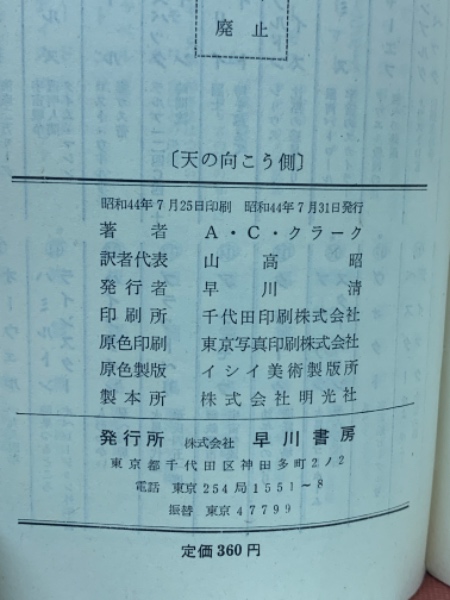 廃止
〔天の向こう側〕
昭和44年7月25日印刷 昭和44年7月31日発行
著者 A・C・クラーク
訳者代表 山高昭
発行者 早川清
印刷所 千代田印刷株式会社
原色印刷 東京写真印刷株式会社
原色製版 イシイ美術製版所
製本所 株式会社明光社
発行所 株式会社 早川書房
東京都千代田区神田多町2ノ2
電話 東京254局1551～8
振替 東京47799
定価360円